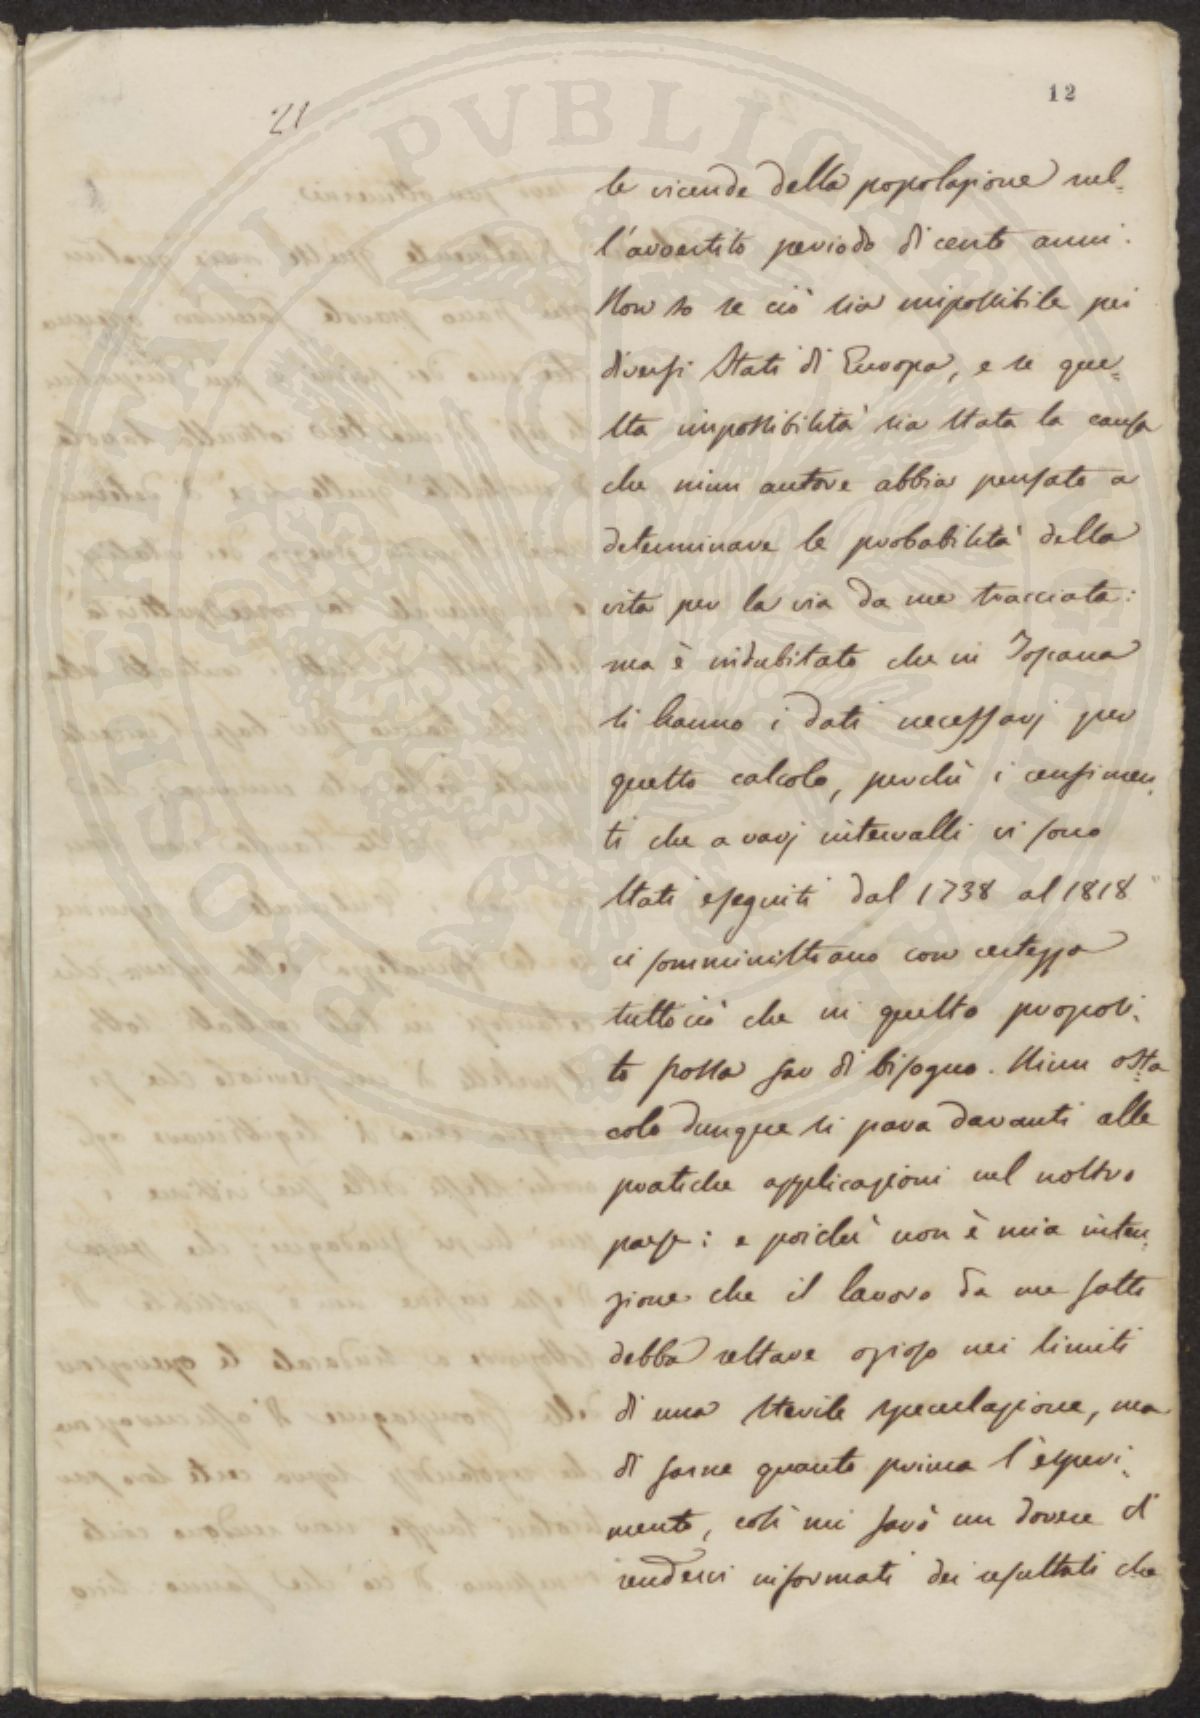 12
21
le vicende della popolazione nel=
l'avvertito periodo di cento anni.
Non so se ciò sia impossibile pei
diversi Stati di Europa, e se que=
sta impossibilità sia stata la causa
che niun autore abbia pensato a
determinare le probabilità della
vita per la via da me tracciata:
ma è indubitato che in Toscana
si hanno i dati necessarj per
questo calcolo, perchè i censimen=
ti che a varj intervalli vi sono
stati eseguiti dal 1738 al 1818
ci somministrano con certezza
tutto ciò che in questo proposi=
to possa far di bisogno. Niun osta
colo dunque si para davanti alle
pratiche applicazioni nel nostro
paese: e poichè non è mia inten=
zione che il lavoro da me fatto
debba restare ozioso nei limiti
di una sterile speculazione, ma
di farne quanto prima l'esperi=
mento, così mi farò un dovere di
rendervi informati dei resultati che
PROSPERITATI PVBLICAE AVGENDAE